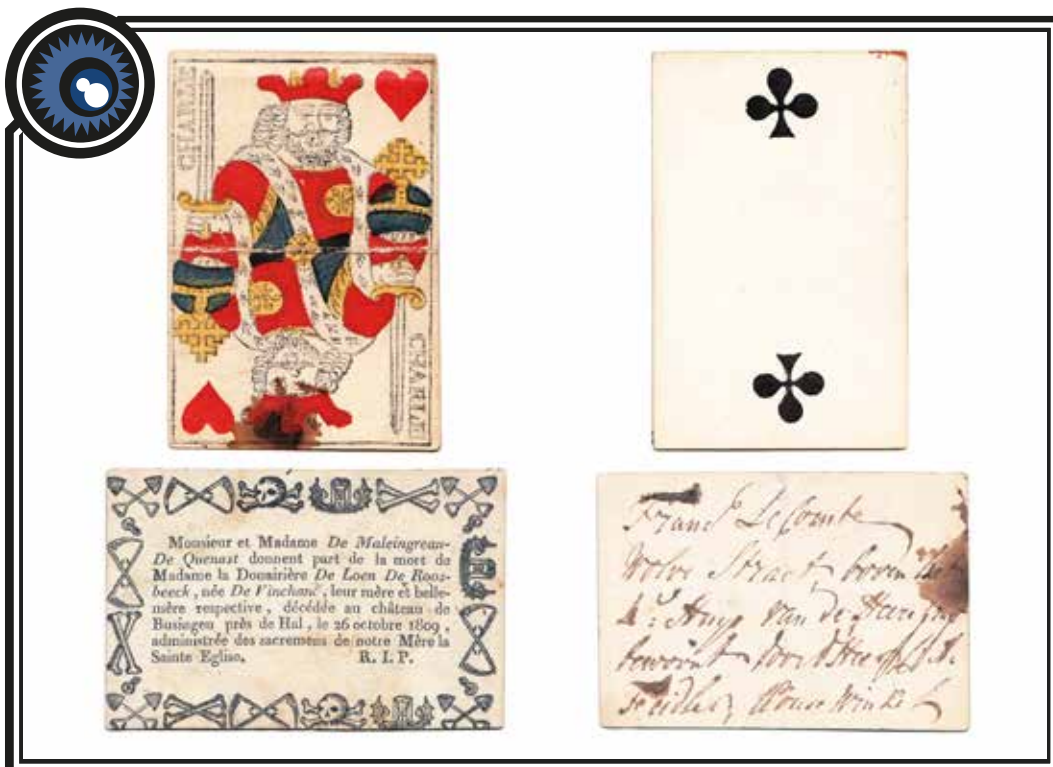 CHARLE
CHARLE
Monsieur et Madame De Maleingreau-
De Quenast donnent part de la mort de
Madame la Douairière De Loen De Roos-
beeck, née De Vinchant, leur mère et belle-
mère respective, décédée au château de
Busingen près de Hal, le 26 octobre 1809,
administrée des sacremens de notre Mère la
Sainte Eglise. R. I. P.
Le Comte
Wolve Straet, boven
Huys van de Heer
bewoont door
Winkel